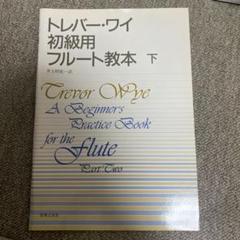 トレバー・ワイ
初級用
フルート教本 下
Trevor Wye
A Beginner's
Practice Book
for the
Flute
Part Two